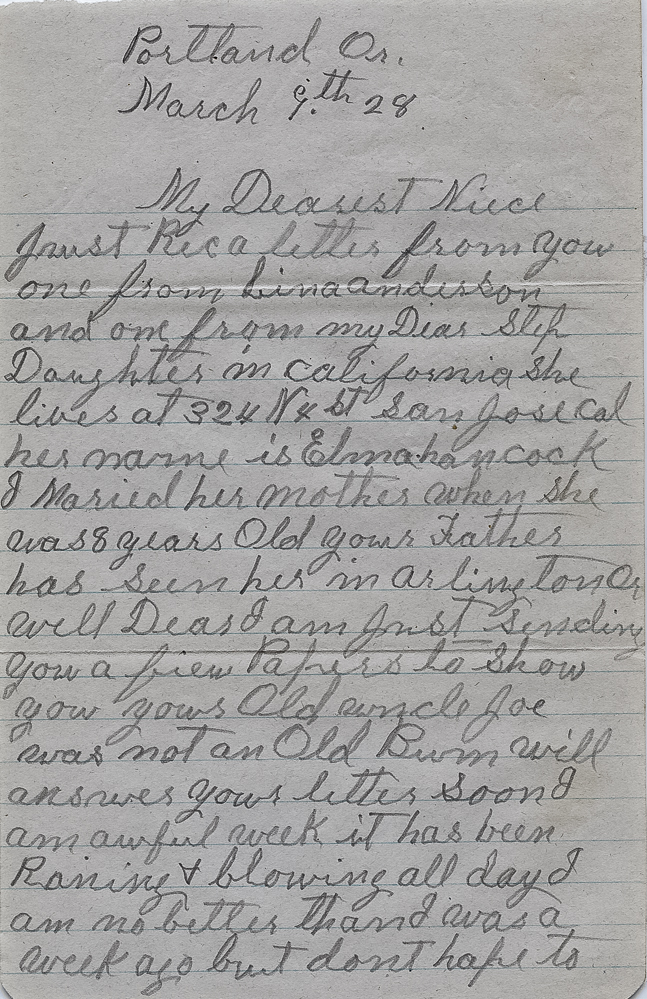 Portland Or.
March 9.th 28
My Dearest Niece
Just Rec a letter from you
one from Lina anderson
and one from my Dear Step
Daughter in California she
lives at 324 N 4 st San Jose Cal
her name is Elma hancock
I Maried her mother when she
was 8 years Old your Father
has seen her in arlington Or
well Dear I am Just Sending
you a fiew Papers to Show
you your Old uncle Joe
was not an Old Bum will
answer your letter soon I
am awful week it has been
Raning & blowing all day I
am no better than I was a
week ago but dont hape to